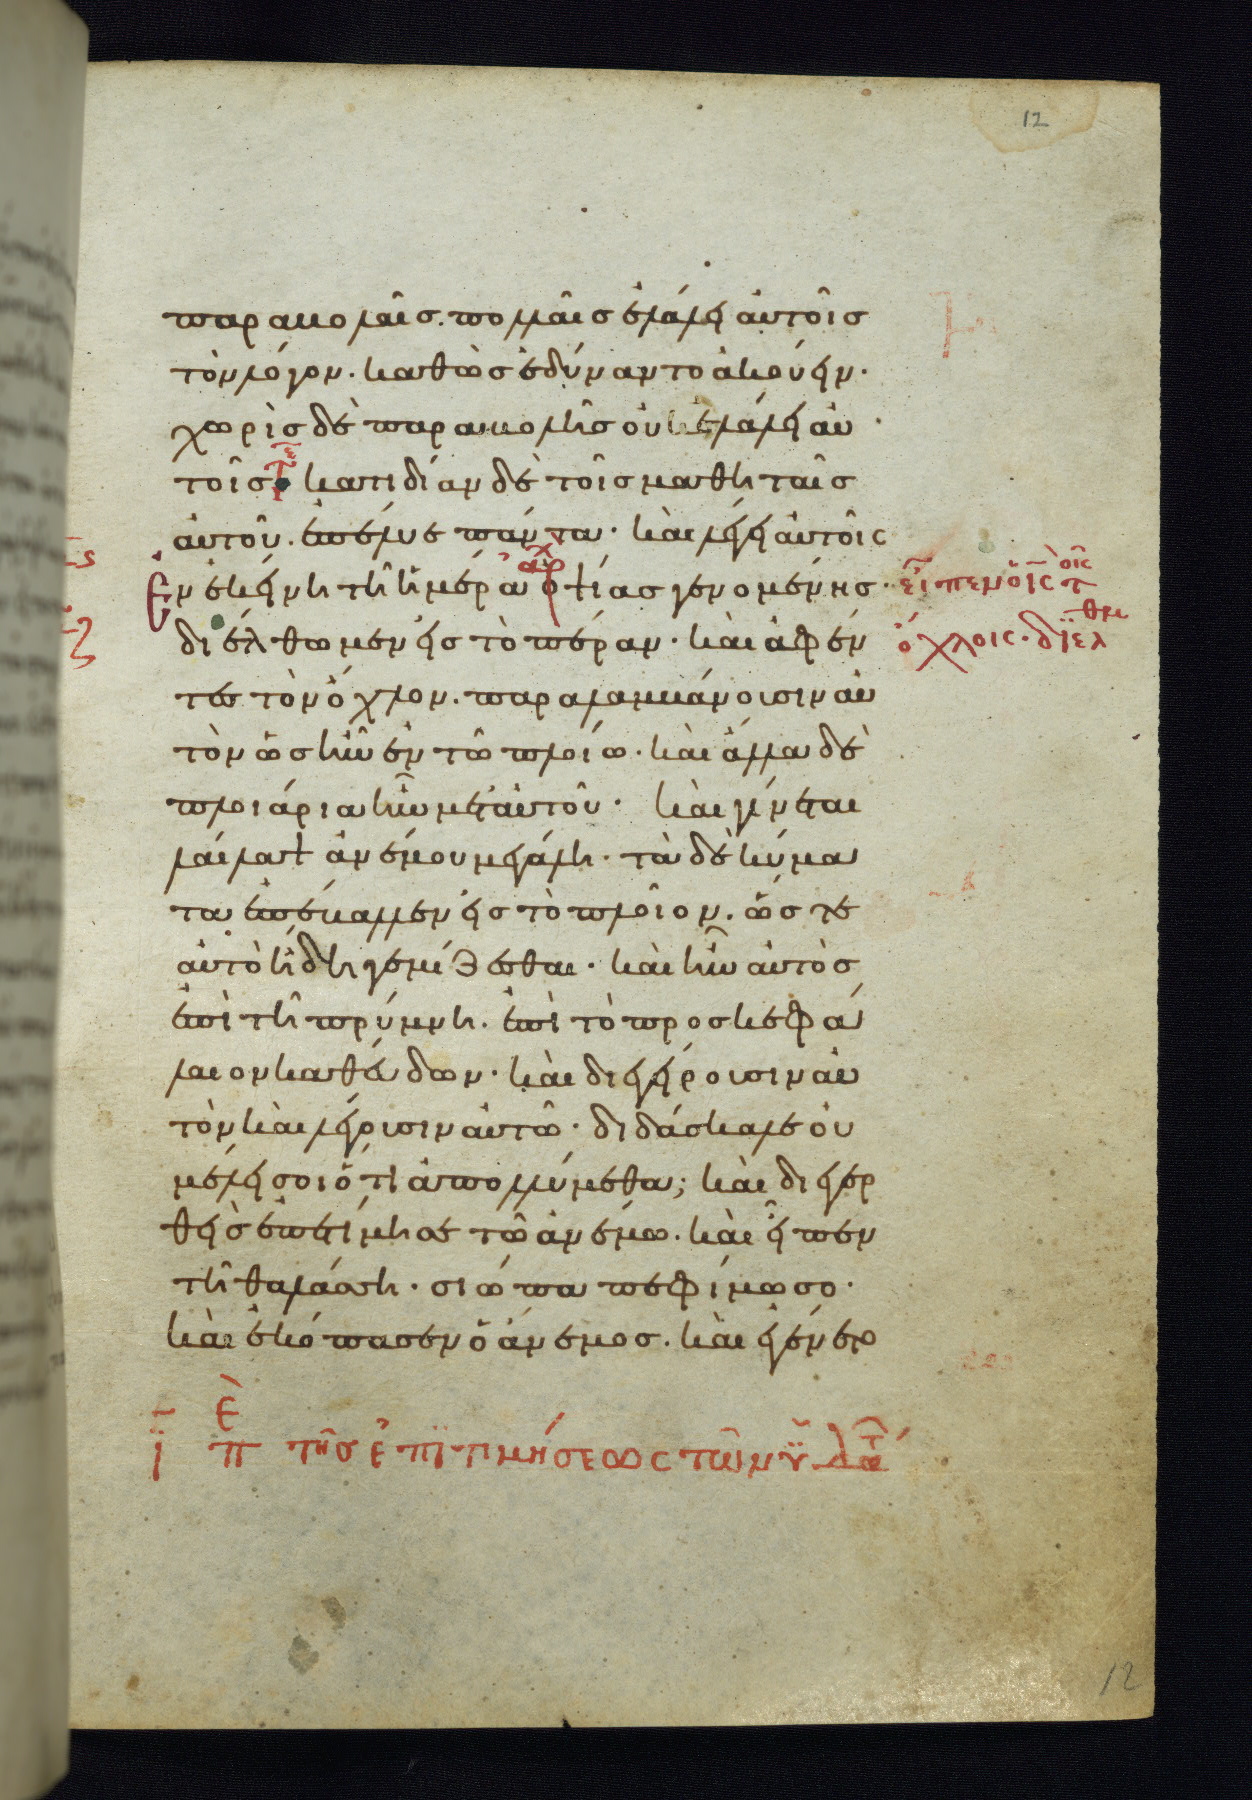 12
παραβολαῖς. πολλαῖς ἐλάλει αὐτοῖς
τὸν λόγον· καθὼς ἐδύναντο ἀκούειν·
χωρὶς δὲ παραβολῆς οὐκ ἐλάλει αὐ
τοῖς· κατιδίαν δὲ τοῖς μαθηταῖς
αὐτοῦ. ἐπέλυε πάντα· καὶ λέγει αὐτοῖς
ἐν ἐκείνη τῆ ἡμέρα ὀψίας γενομένης· εἶπεν ὁ ις τοῖς
διέλθωμεν εἰς τὸ πέραν· καὶ ἀφέν ὄχλοις· διέλθωμεν
τες τὸν ὄχλον. παραλαμβάνουσιν αὐ
τὸν ὡς ἦν ἐν τῶ πλοίω· καὶ ἄλλα δὲ
πλοιάρια ἦν μετ' αὐτοῦ· καὶ γίνεται
λαίλαψ ἀνέμου μεγάλη· τὰ δὲ κύμα
τα ἐπέβαλλεν εἰς τὸ πλοῖον. ὥστε
αὐτὸ ἤδη γεμίζεσθαι· καὶ ἦν αὐτὸς
ἐπὶ τῆ πρύμνη. ἐπὶ τὸ προσκεφά
λαιον καθεύδων· καὶ διεγείρουσιν αὐ
τὸν καὶ λέγουσιν αὐτῶ· διδάσκαλε οὐ
μέλει σοι ὅτι ἀπολλύμεθα; καὶ διεγερ
θεὶς ἐπετίμησε τῶ ἀνέμω. καὶ εἶπεν
τῆ θαλάσση· σιώπα πεφίμωσο·
καὶ ἐκόπασεν ὁ ἄνεμος. καὶ ἐγένετο
ι πε τῆς ἐπιτιμήσεως τῶν ὑδάτ
12